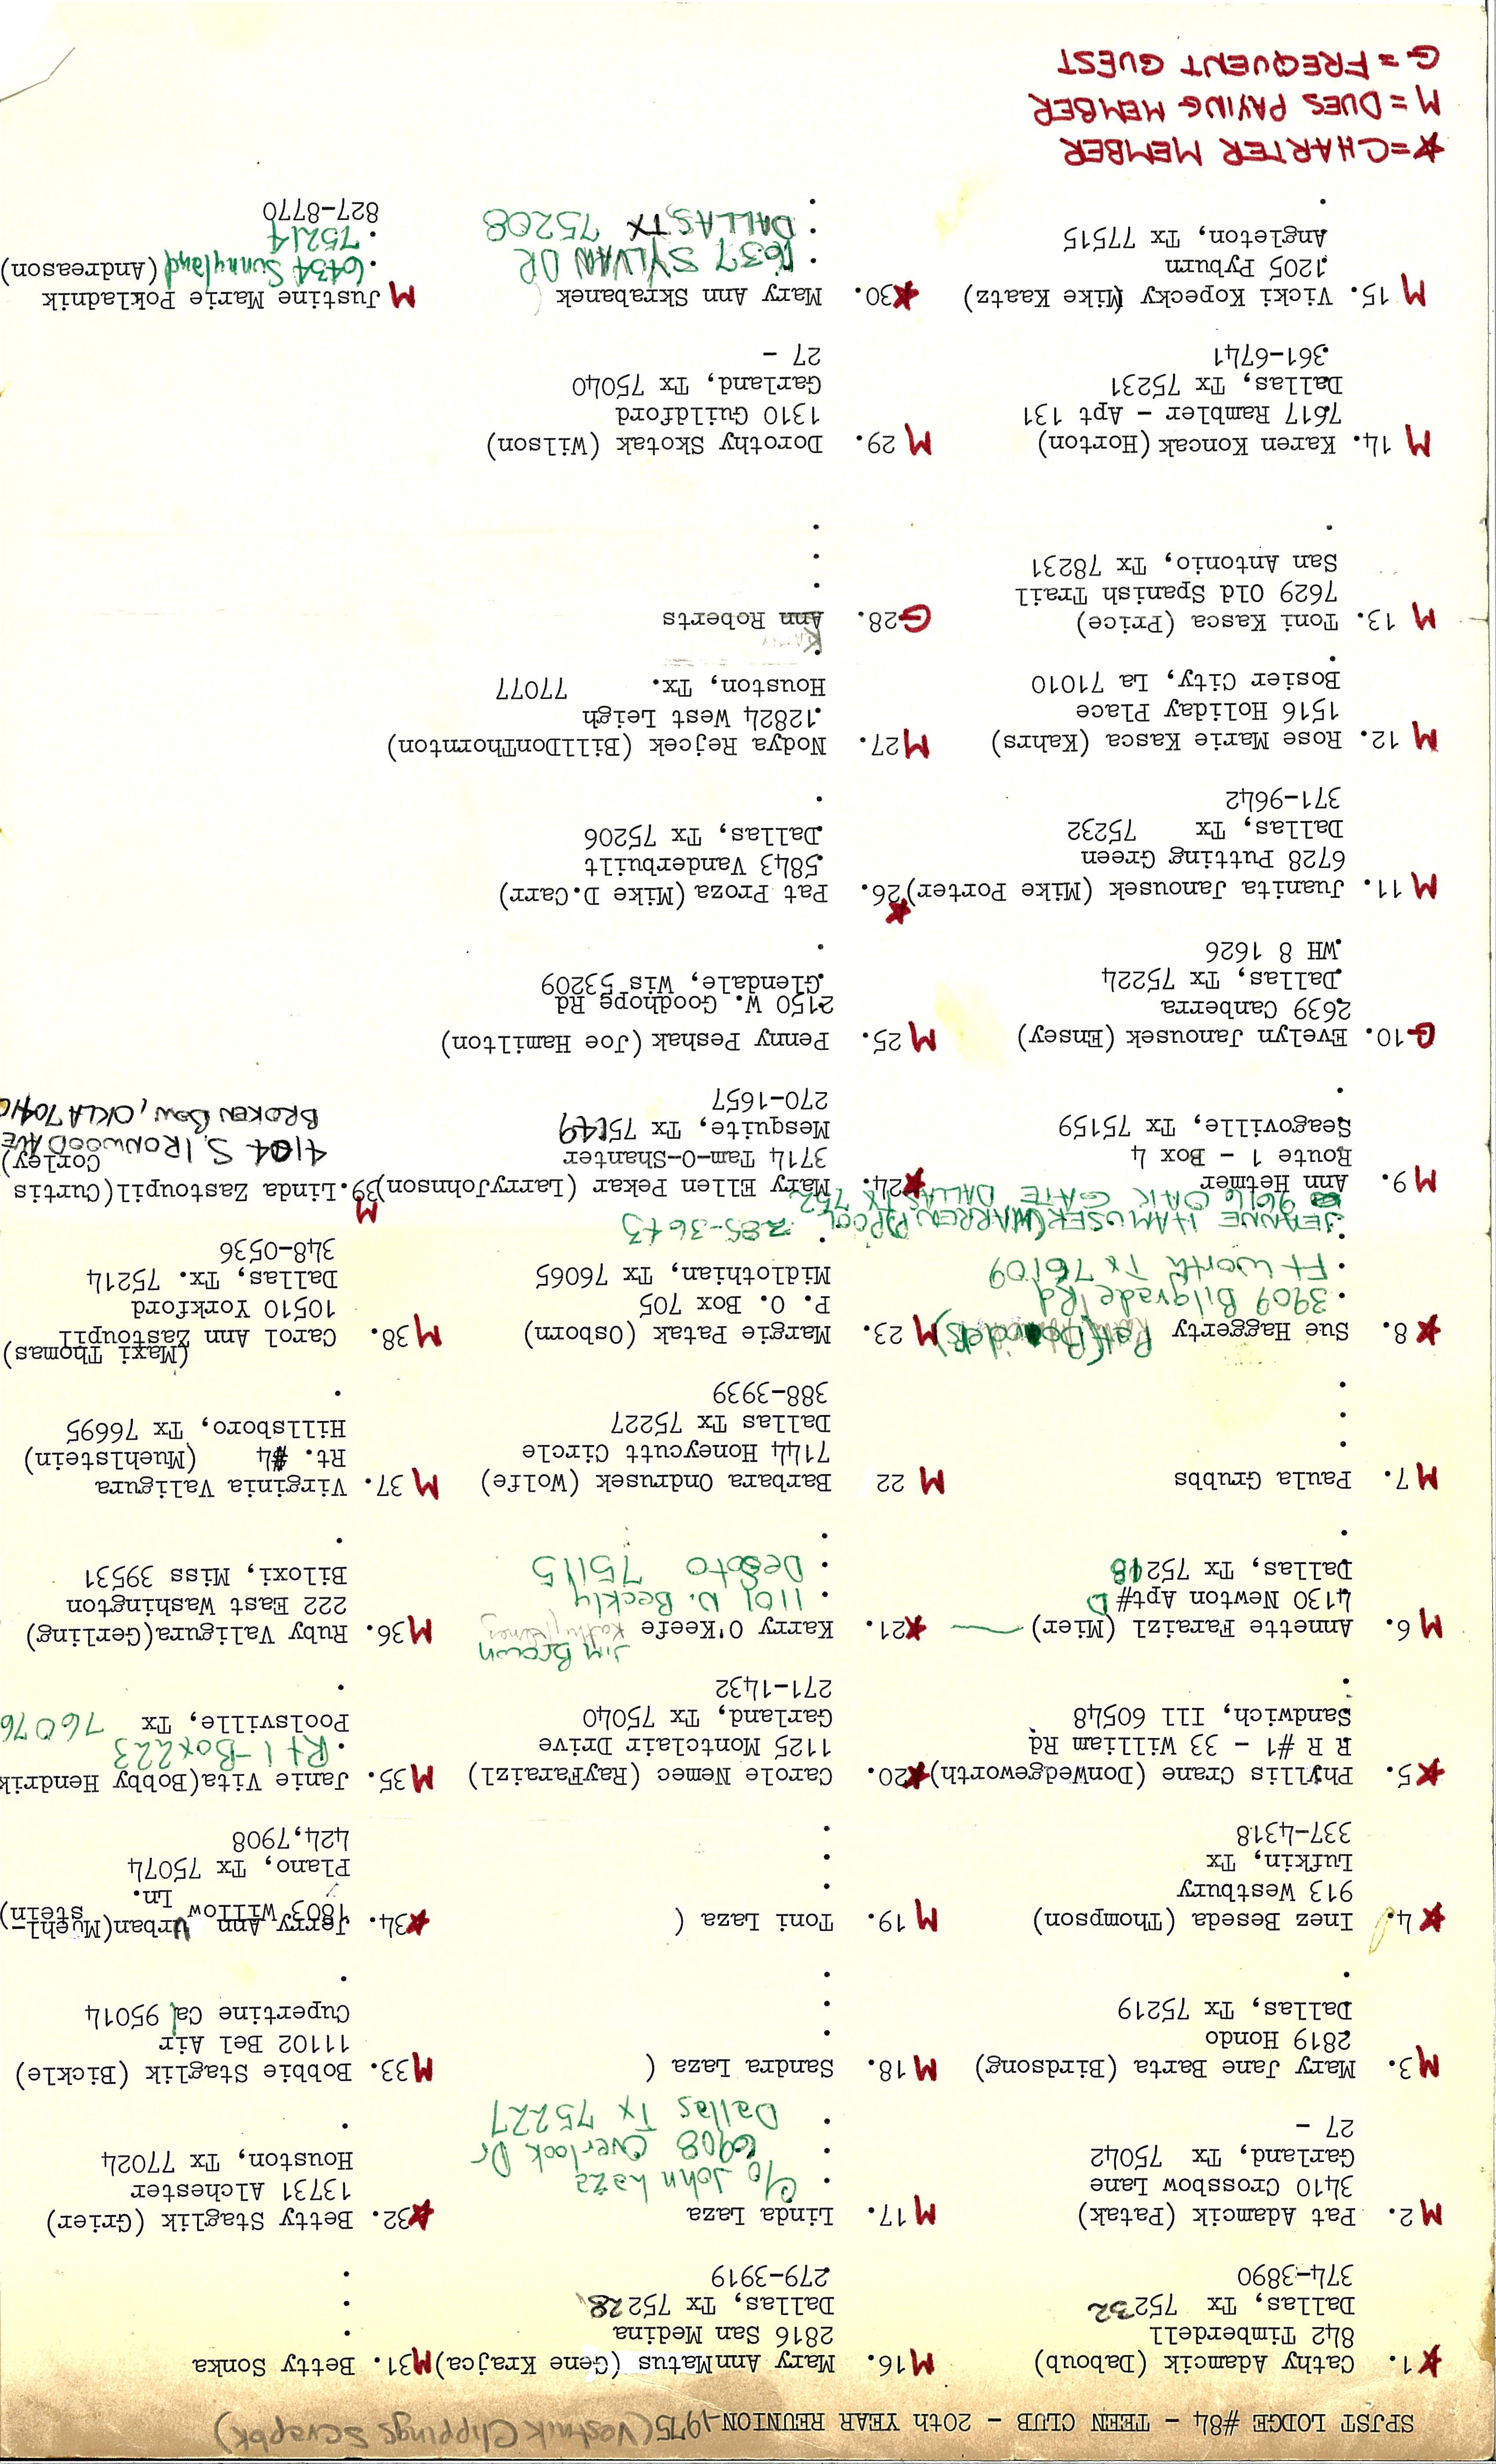 SPJST LODGE #84 - TEEN CLUB - 20th YEAR REUNION-1975 (Vestnik Clippings Scrapbk)
★ 1. Cathy Adamcik (Daboub)
842 Timberdell
Dallas, Tx 75232
374-3890
M 2. Pat Adamcik (Patak)
3410 Crossbow Lane
Garland, Tx 75042
27 -
M 3. Mary Jane Barta (Birdsong)
2819 Hondo
Dallas, Tx 75219
.
★ 4. Inez Beseda (Thompson)
913 Westbury
Lufkin, Tx
337-4318
★ 5. Phyllis Crane (DonWedgeworth)
R R #1 - 33 William Rd
Sandwich, Ill 60548
.
M 6. Annette Faraizl (Mier)
4130 Newton Apt# D
Dallas, Tx 75248
.
M 7. Paula Grubbs
.
.
.
★ 8. Sue Haggerty (Borders)
. 3909 Bilgrade Rd
. Ft Worth Tx 76109
.
JEANNE HAMUSEK (WARREN P) POOL 285-3643
9616 OAK GATE DALLAS TX 752
M 9. Ann Hetmer
Route 1 - Box 4
Seagoville, Tx 75159
.
G 10. Evelyn Janousek (Ensey)
2639 Canberra
Dallas, Tx 75224
WH 8 1626
M 11. Juanita Janousek (Mike Porter)
6728 Putting Green
Dallas, Tx 75232
371-9642
M 12. Rose Marie Kasca (Kahrs)
1516 Holiday Place
Bosier City, La 71010
.
M 13. Toni Kasca (Price)
7629 Old Spanish Trail
San Antonio, Tx 78231
.
M 14. Karen Koncak (Horton)
7617 Rambler - Apt 131
Dallas, Tx 75231
361-6741
M 15. Vicki Kopecky (Mike Kaatz)
1205 Pyburn
Angleton, Tx 77515
.
★=CHARTER MEMBER
M=DUES PAYING MEMBER
G=FREQUENT GUEST
M 16. Mary AnnMatus (Gene Krajca)
2816 San Medina
Dallas, Tx 75228
279-3919
M 17. Linda Laza
. c/o John Laza
. 6908 Overlook Dr
. Dallas Tx 75227
M 18. Sandra Laza (
.
.
.
M 19. Toni Laza (
.
.
.
★ 20. Carole Nemec (RayFaraizl)
1125 Montclair Drive
Garland, Tx 75040
271-1432
Jim Brown
★ 21. Karry O'Keefe
. 1101 N. Beckly
. DeSoto 75115
.
M 22 Barbara Ondrusek (Wolfe)
7144 Honeycutt Circle
Dallas Tx 75227
388-3939
M 23. Margie Patak (Osborn)
P. O. Box 705
Midlothian, Tx 76065
.
★ 24. Mary Ellen Pekar (LarryJohnson)
3714 Tam-O-Shanter
Mesquite, Tx 75149
270-1657
M 25. Penny Peshak (Joe Hamilton)
2150 W. Goodhope Rd
Glendale, Wis 53209
.
★ 26. Pat Proza (Mike D.Carr)
5843 Vanderbuilt
Dallas, Tx 75206
.
M 27. Nodya Rejcek (BillDonThornton)
12824 West Leigh
Houston, Tx. 77077
.
G 28. Ann Roberts
.
.
.
M 29. Dorothy Skotak (Wilson)
1310 Guildford
Garland, Tx 75040
27 -
★ 30. Mary Ann Skrabanek (
. 1637 SYLVAN DR
. DALLAS TX 75208
.
M 31. Betty Sonka
.
.
.
★ 32. Betty Staglik (Grier)
13731 Alchester
Houston, Tx 77024
.
M 33. Bobbie Staglik (Bickle)
11102 Bel Air
Cupertine Cal 95014
.
★ 34. Jerry Ann Urban(Muehl-stein)
1803 Willow Ln.
Plano, Tx 75074
424,7908
M 35. Janie Vita(Bobby Hendrik
. Rt 1-Box 223
Poolsville, Tx 76076
.
M 36. Ruby Valigura(Gerling)
222 East Washington
Biloxi, Miss 39531
.
M 37. Virginia Valigura
Rt. #4 (Muehlstein)
Hillsboro, Tx 76695
.
(Maxi Thomas)
M 38. Carol Ann Zastoupil
10510 Yorkford
Dallas, Tx. 75214
348-0536
M 39. Linda Zastoupil(Curtis Corley)
4104 S. IRONWOOD AVE
BROKEN BOW, OKLA 740
M Justine Marie Pokladnik
. 6434 Sunnyland (Andreason)
. 75214
827-8770